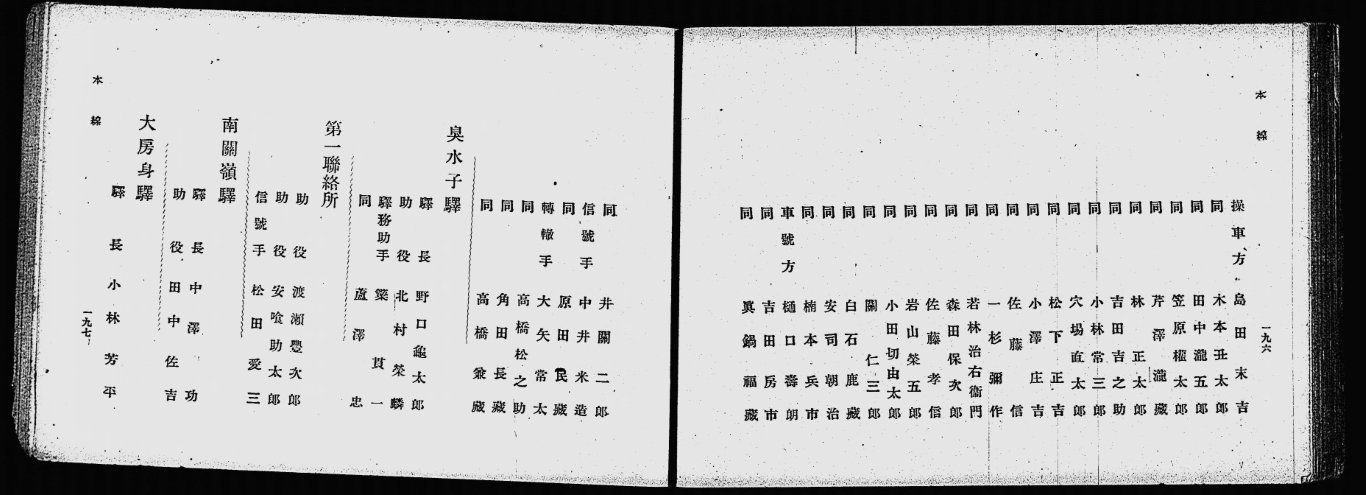 本線
一九六
操車方 島田末吉
同 木本丑太郎
同 田中瀧五郎
同 笠原權太郎
同 芹澤瀧藏
同 林正太郎
同 吉田吉之助
同 小林常三郎
同 穴場直太郎
同 松下正吉
同 小澤庄吉
同 佐藤信
同 一杉彌作
同 若林治右衞門
同 森田保次郎
同 佐藤孝信
同 岩山榮五郎
同 小田切由太郎
同 關仁三郎
同 白石鹿藏
同 安司朝治
同 楠本兵市
車號方 樋口壽朗
同 吉田房市
同 眞鍋福藏
本線
一九七
同 井關二郎
信號手 中井米造
同 原田民藏
轉轍手 大矢常太
同 高橋松之助
同 角田長藏
同 高橋兼藏
臭水子驛
驛長 野口龜太郎
助役 北村榮麟
驛務助手 簗貫一
同 蘆澤忠
第一聯絡所
助役 渡瀬豐次郎
助役 安喰助太郎
信號手 松田愛三
南關嶺驛
驛長 中澤功
助役 田中佐吉
大房身驛
驛長 小林芳平